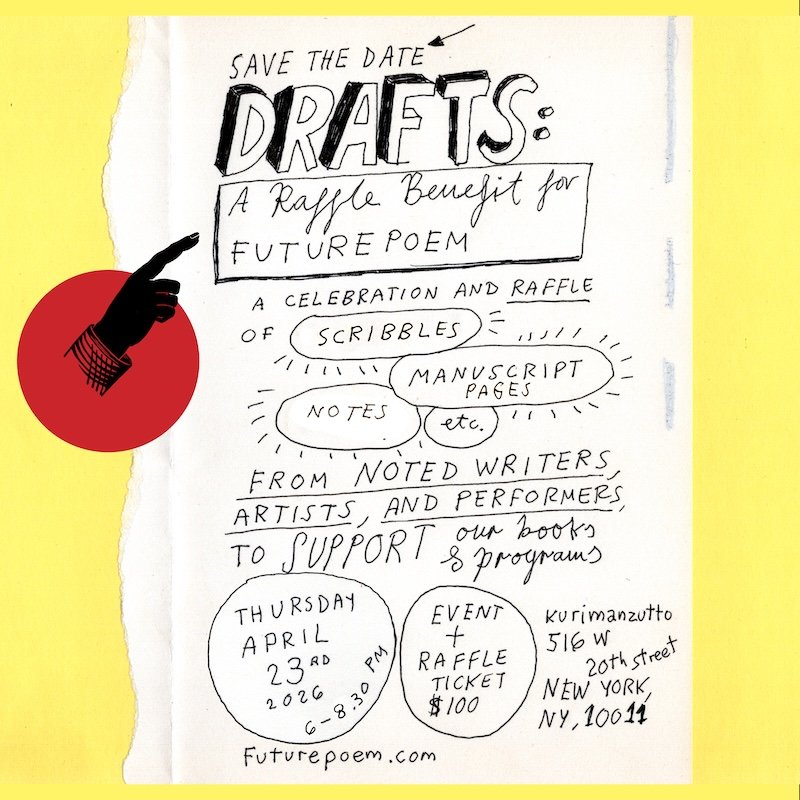 SAVE THE DATE
DRAFTS:
A Raffle Benefit for
FUTUREPOEM
A CELEBRATION AND RAFFLE
OF SCRIBBLES
MANUSCRIPT
PAGES
NOTES
etc.
FROM NOTED WRITERS,
ARTISTS, AND PERFORMERS,
TO SUPPORT our books
& programs
THURSDAY
APRIL
23RD
2026
6-8.30 PM
EVENT
+
RAFFLE
TICKET
$100
kurimanzutto
516 W
20th street
NEW YORK,
NY, 10011
Futurepoem.com